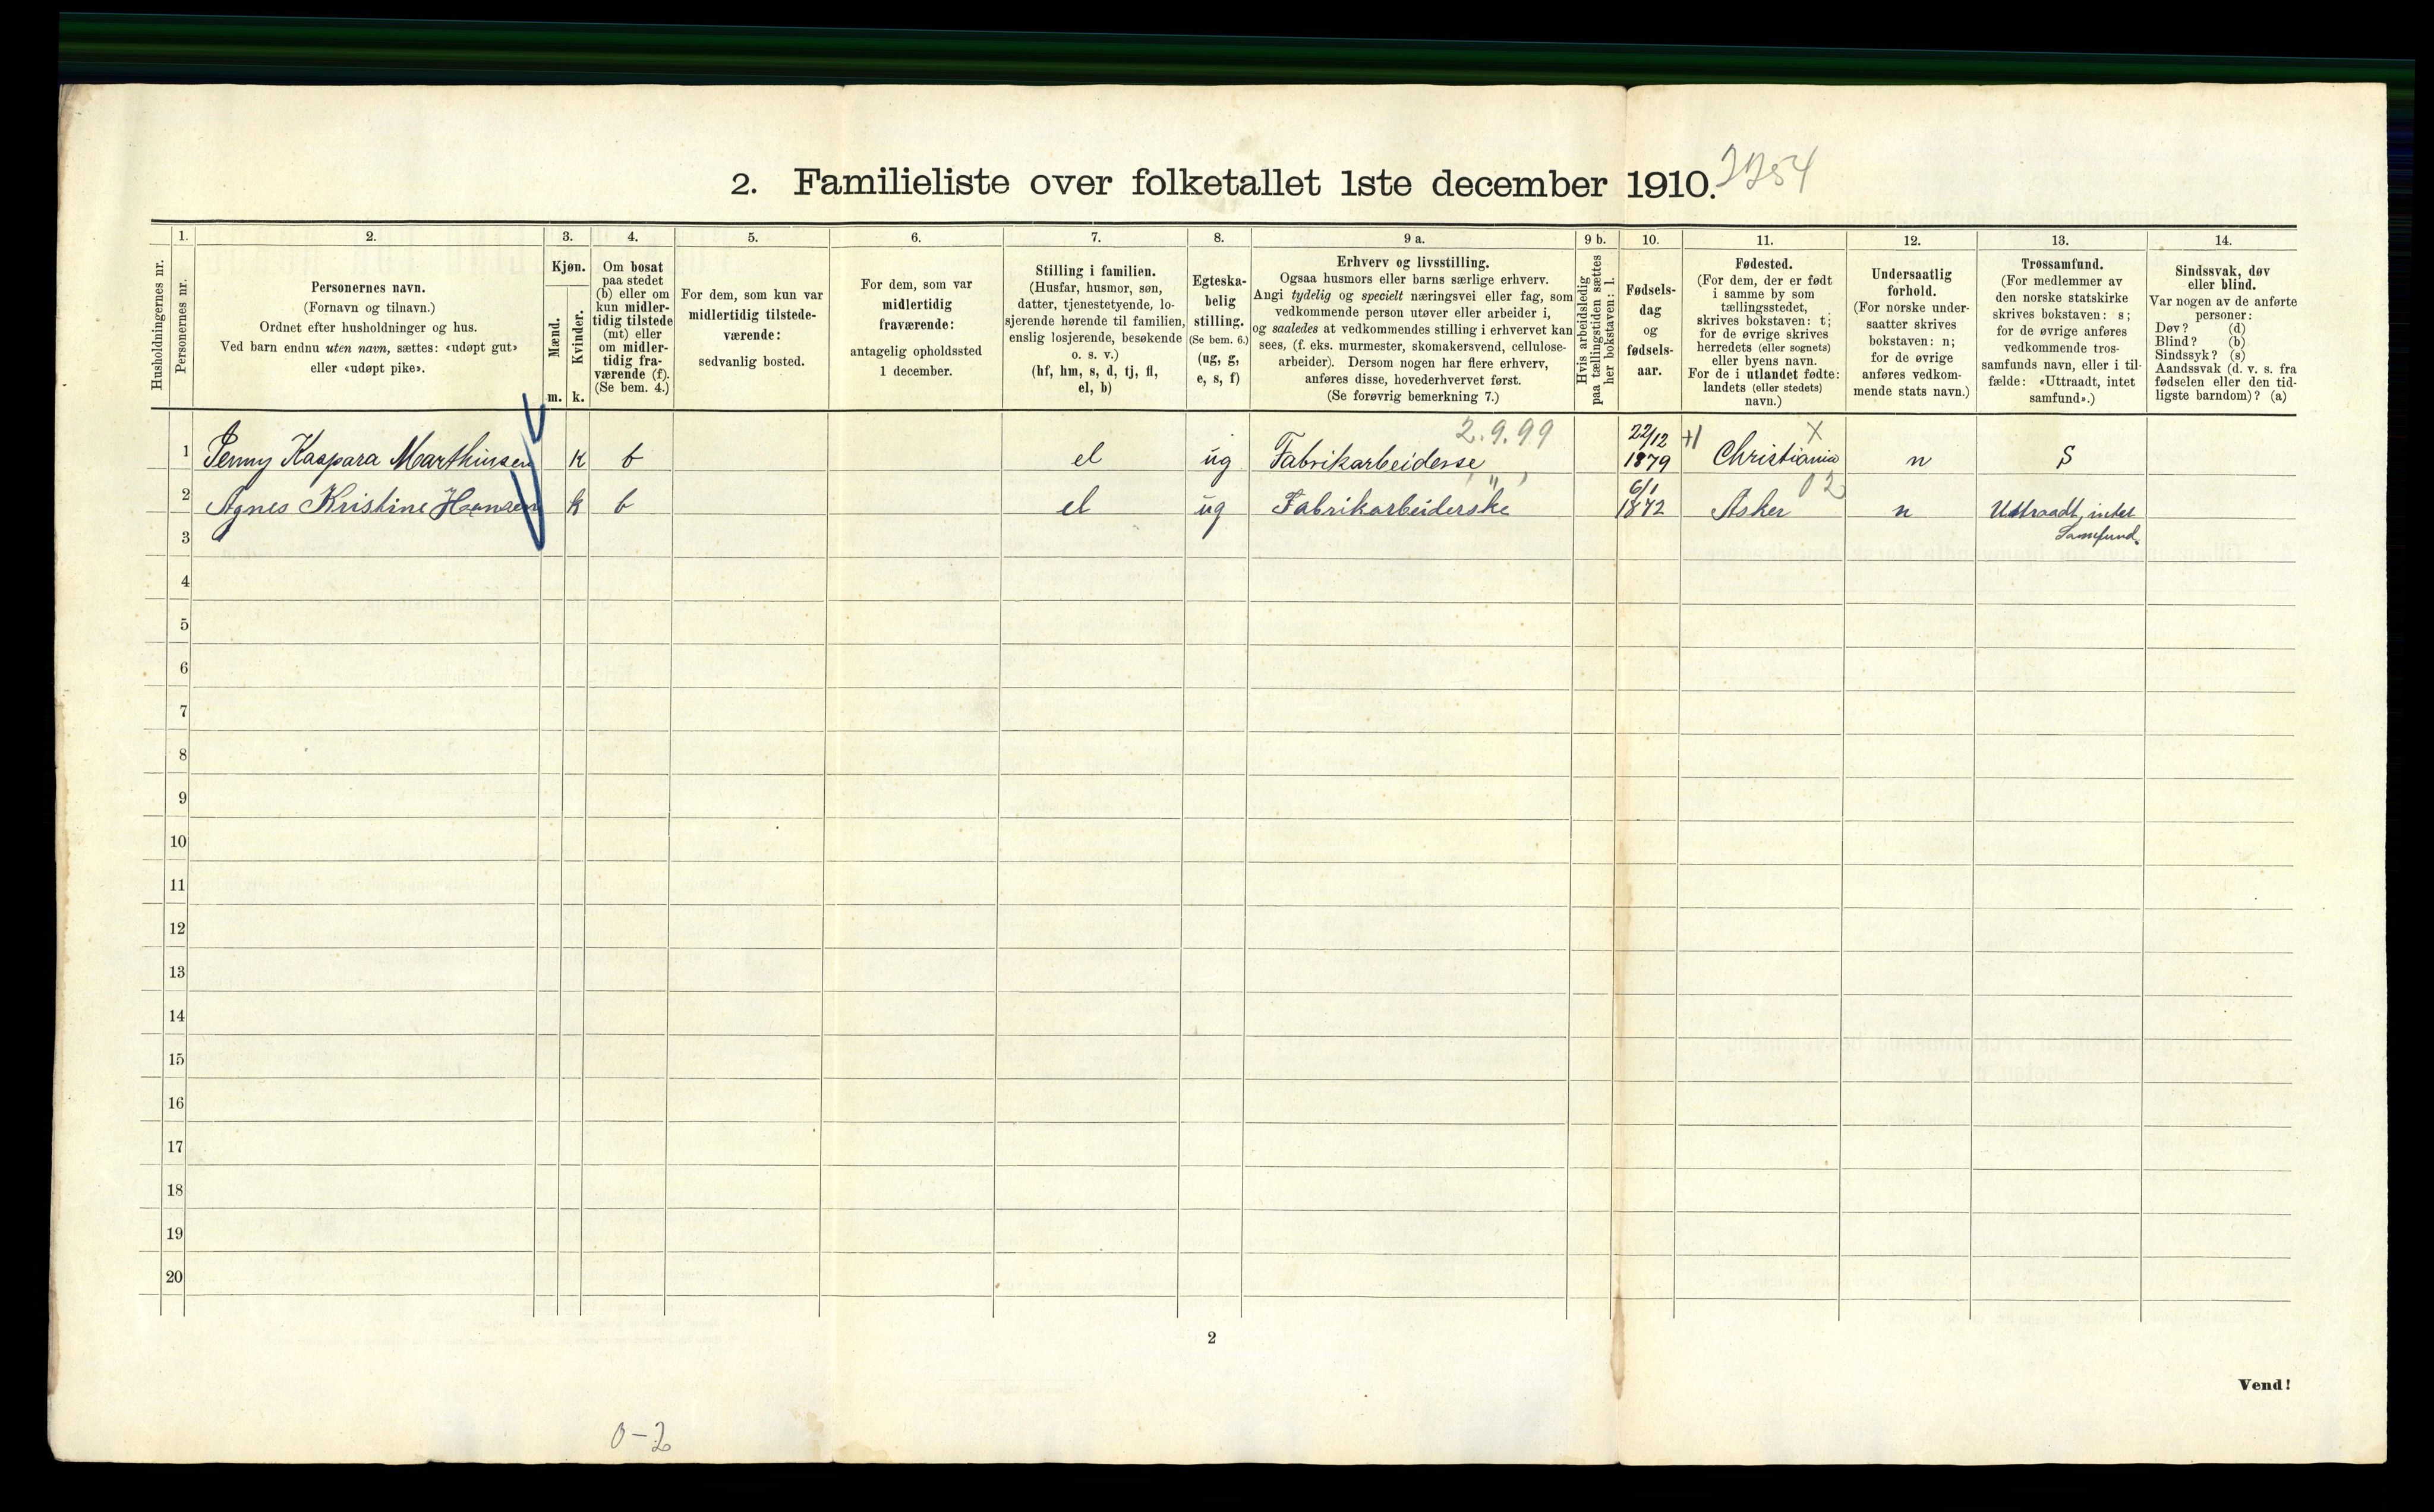 2. Familieliste over folketallet 1ste december 1910.
1. 2. 3. 4. 5. 6. 7. 8. 9 a. 9 b. 10. 11. 12. 13. 14.
Husholdningernes nr.
Personernes nr.
Personernes navn.
(Fornavn og tilnavn.)
Ordnet efter husholdninger og hus.
Ved barn endnu uten navn, sættes: «udøpt gut»
eller «udøpt pike».
Kjøn.
Mænd.
Kvinder.
m. k.
Om bosat
paa stedet
(b) eller om
kun midler-
tidig tilstede
(mt) eller
om midler-
tidig fra-
værende (f).
(Se bem. 4.)
For dem, som kun var
midlertidig tilstede-
værende:
sedvanlig bosted.
For dem, som var
midlertidig
fraværende:
antagelig opholdssted
1 december.
Stilling i familien.
(Husfar, husmor, søn,
datter, tjenestetyende, lo-
sjerende hørende til familien,
enslig losjerende, besøkende
o. s. v.)
(hf, hm, s, d, tj, fl,
el, b)
Egteska-
belig
stilling.
(Se bem. 6.)
(ug, g,
e, s, f)
Erhverv og livsstilling.
Ogsaa husmors eller barns særlige erhverv.
Angi tydelig og specielt næringsvei eller fag, som
vedkommende person utøver eller arbeider i,
og saaledes at vedkommendes stilling i erhvervet kan
sees, (f. eks. murmester, skomakersvend, cellulose-
arbeider). Dersom nogen har flere erhverv,
anføres disse, hovederhvervet først.
(Se forøvrig bemerkning 7.)
Hvis arbeidsledig
paa tællingstiden sættes
her bokstaven: l.
Fødsels-
dag
og
fødsels-
aar.
Fødested.
(For dem, der er født
i samme by som
tællingsstedet,
skrives bokstaven: t;
for de øvrige skrives
herredets (eller sognets)
eller byens navn.
For de i utlandet fødte:
landets (eller stedets)
navn.)
Undersaatlig
forhold.
(For norske under-
saatter skrives
bokstaven: n;
for de øvrige
anføres vedkom-
mende stats navn.)
Trossamfund.
(For medlemmer av
den norske statskirke
skrives bokstaven: s;
for de øvrige anføres
vedkommende tros-
samfunds navn, eller i til-
fælde: «Uttraadt, intet
samfund».)
Sindssvak, døv
eller blind.
Var nogen av de anførte
personer:
Døv? (d)
Blind? (b)
Sindssyk? (s)
Aandssvak (d. v. s. fra
fødselen eller den tid-
ligste barndom)? (a)
2.9.99 22/12 X
1 Jenny Kaspara Marthinsen k b el ug Fabrikarbeiderse 1879 Christiania n S
" 6/1 02
2 Agnes Kristine Hansen k b el ug Fabrikarbeiderske 1872 Asker n Uttraadt, intet
3 Samfund.
4
5
6
7
8
9
10
11
12
13
14
15
16
17
18
19
20
2
Vend!
0-2